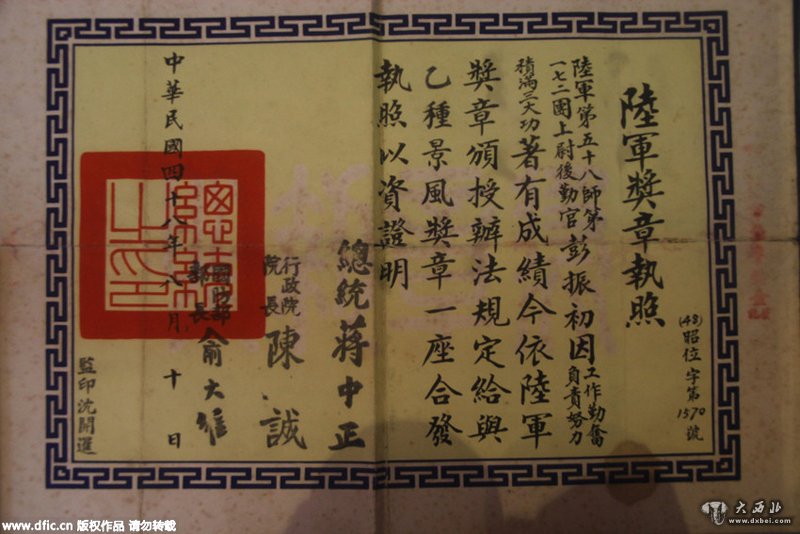 陸軍獎章執照
(48)昭位字第1570號
陸軍第五十八師第
一七二團上尉後勤官彭振初因工作勤奮
負責努力
積滿三大功著有成績今依陸軍
獎章頒授辦法規定給與
乙種景風獎章一座合發
執照以資證明
總統蔣中正
行政院
院長陳誠
國防部
部長俞大維
中華民國四十八年八月十日
監印沈開進
總統之印
www.dfic.cn 版权作品 请勿转载
大西北
www.dxbei.com